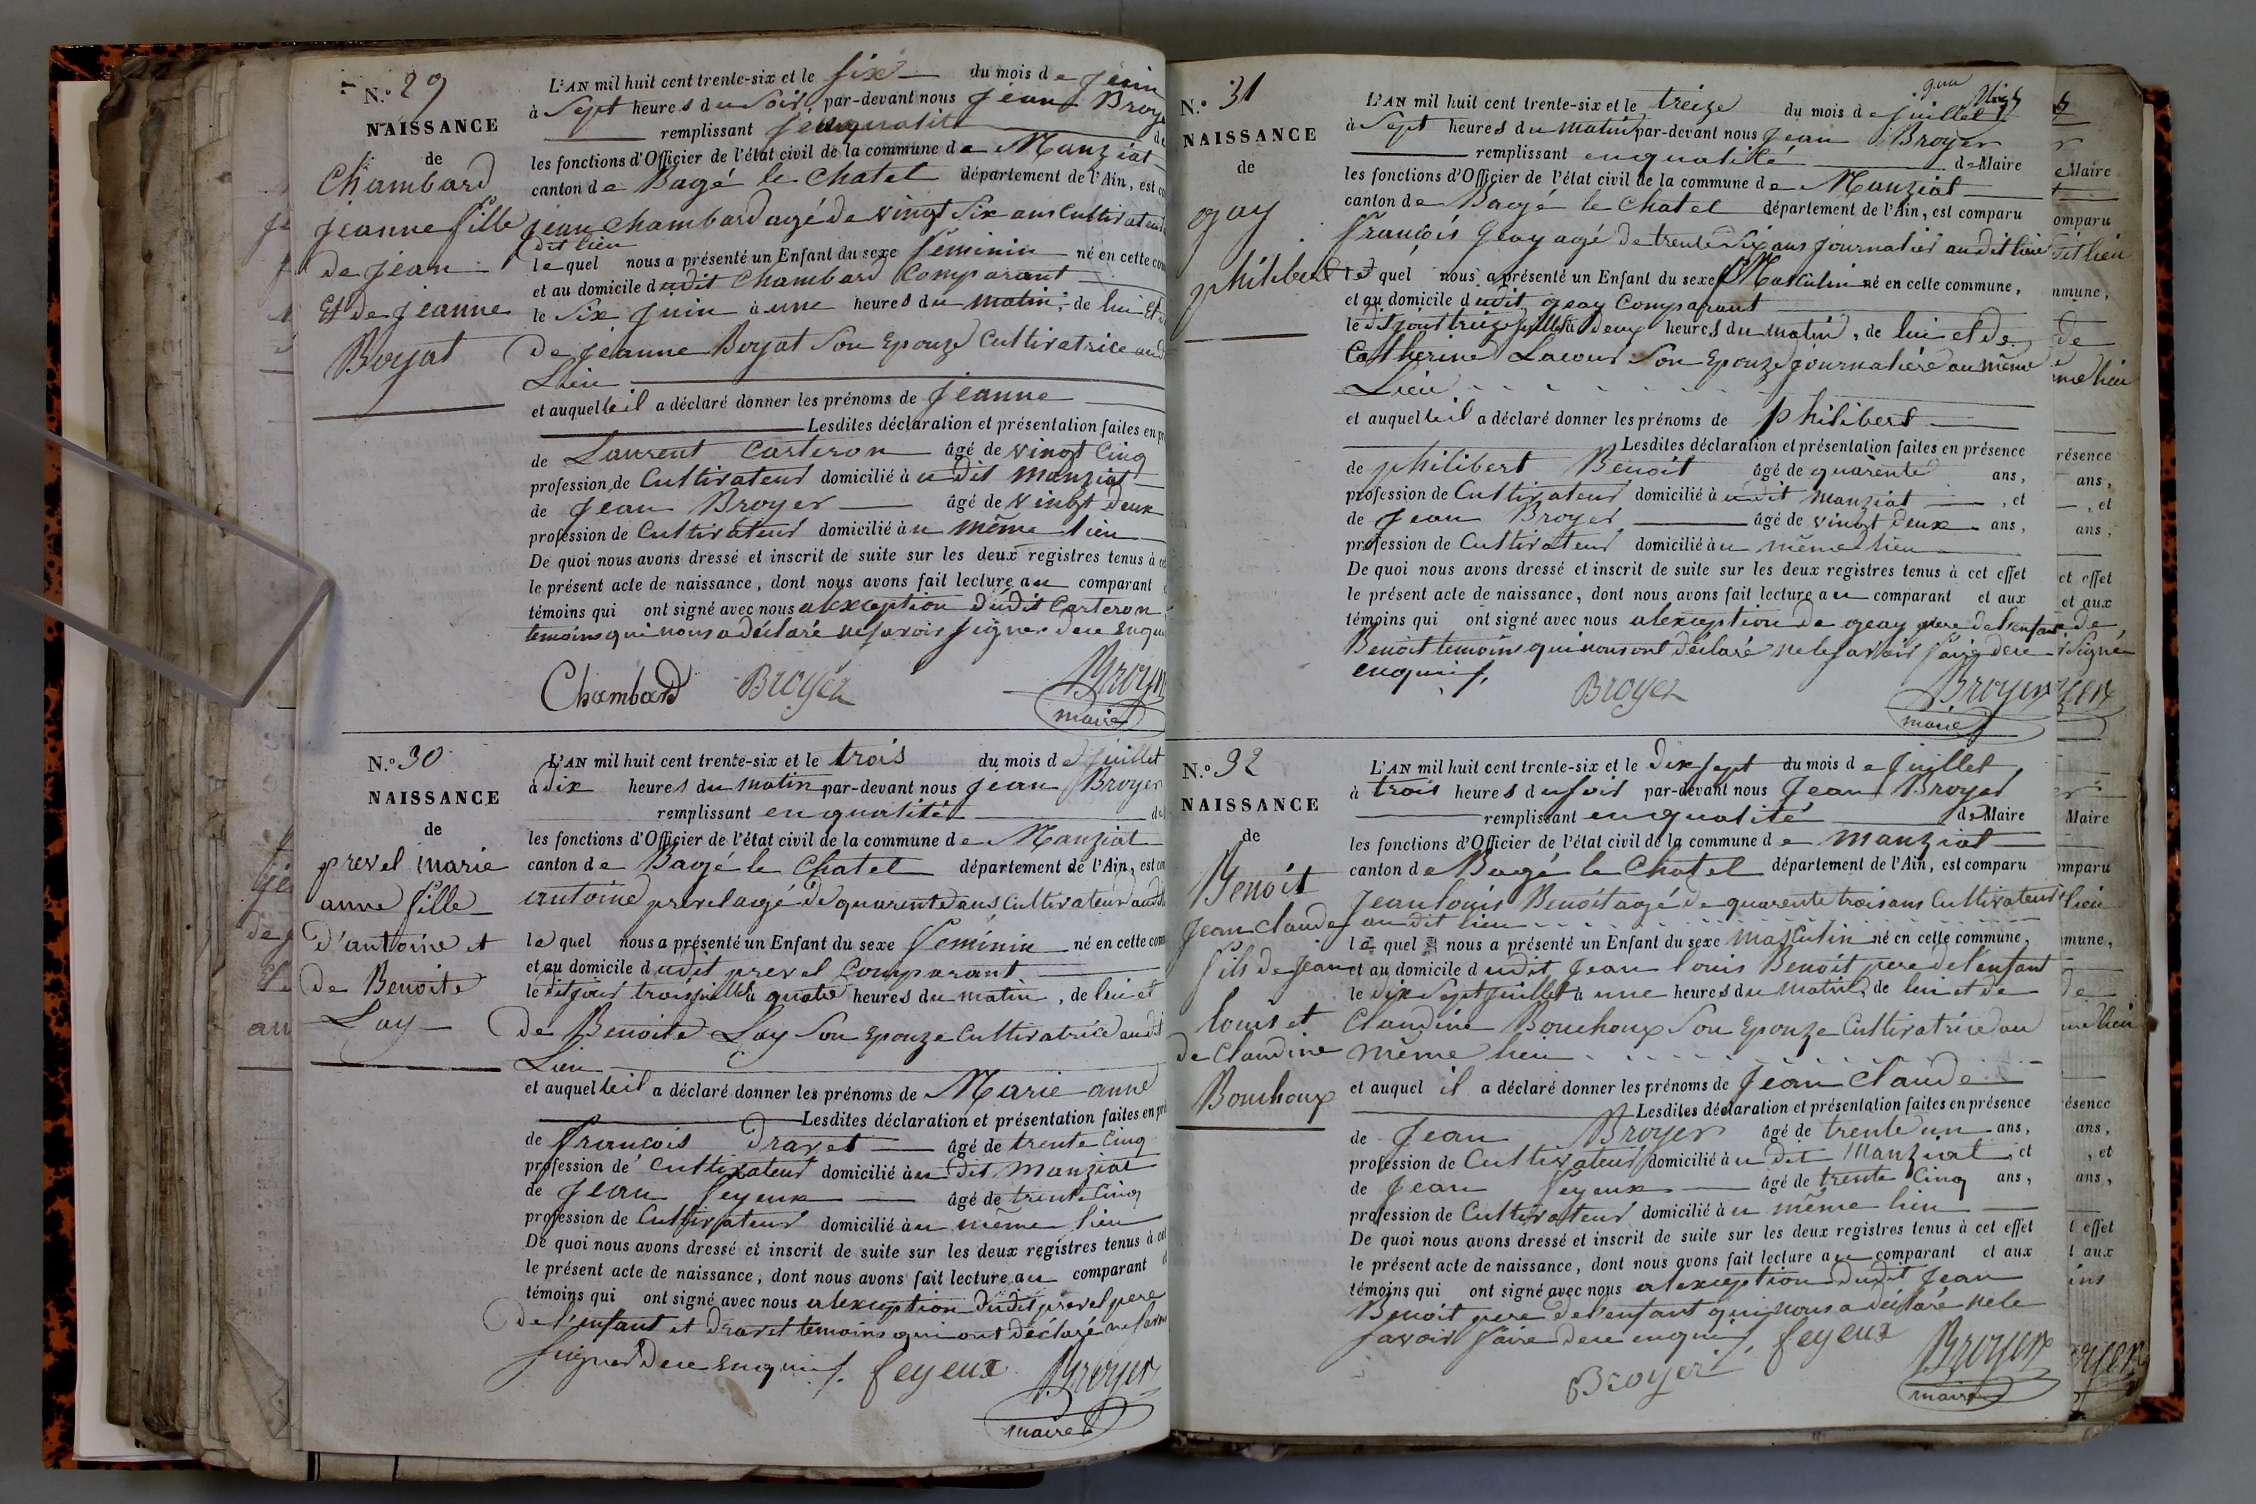 N.º 29
NAISSANCE
de
Chambard
jeanne fille
de jean
Et de jeanne
Boyat
L'AN mil huit cent trente-six et le six du mois de juin
à Sept heures du Soir par-devant nous jean Broy
remplissant
les fonctions d'Officier de l'état civil de la commune de Manziat
canton de Bagé le Chatel département de l'Ain, est
jean Chambard agé de vingt Six ans Cultivateur
dit lieu
le quel nous a présenté un Enfant du sexe féminin né en cette
et au domicile dudit Chambard Comparant
le Six juin à une heures du matin, de lui Et
de jeanne Boyat Son Epouze Cultivatrice
Lieu
et auquel il a déclaré donner les prénoms de jeanne
Lesdites déclaration et présentation faites en
de Laurent Carteron âgé de vingt Cinq
profession de Cultivateur domicilié à u dit manziat
de jean Broyer âgé de vingt deux
profession de Cultivateur domicilié à u même lieu
De quoi nous avons dressé et inscrit de suite sur les deux registres tenus à
le présent acte de naissance, dont nous avons fait lecture au comparant
témoins qui ont signé avec nous alexception dudit Carteron
temoins qui nous a déclaré ne savoir signer de ce
Chambard Broyer Broyer
maire
N.º 30
NAISSANCE
de
prevel marie
anne fille
d'antoine et
de Benoite
Loy
L'AN mil huit cent trente-six et le trois du mois de juillet
à dix heures du matin par-devant nous jean Broyer
remplissant en qualité
les fonctions d'Officier de l'état civil de la commune de Manziat
canton de Bagé le Chatel département de l'Ain, est
antoine prevel agé de quarente ans Cultivateur
le quel nous a présenté un Enfant du sexe féminin né en cette
et au domicile dudit prevel Comparant
le dit jour trois juillet à quatre heures du matin, de lui et
de Benoite Loy Son Epouze Cultivatrice audit
Lieu
et auquel il a déclaré donner les prénoms de Marie anne
Lesdites déclaration et présentation faites en
de françois Dravet âgé de trente Cinq
profession de Cultivateur domicilié à u dit Manziat
de jean feyeux âgé de trente Cinq
profession de Cultivateur domicilié à u même lieu
De quoi nous avons dressé et inscrit de suite sur les deux registres tenus à
le présent acte de naissance, dont nous avons fait lecture au comparant
témoins qui ont signé avec nous alexception dudit prevel pere
de l'enfant et dravet temoins qui ont déclaré ne
signer de ce Enquis feyeux Broyer
maire
N.º 31
NAISSANCE
de
geay
philibert
L'AN mil huit cent trente-six et le treize du mois de juillet
à Sept heures du matin par-devant nous jean Broyer
remplissant en qualité de Maire
les fonctions d'Officier de l'état civil de la commune de Manziat
canton de Bagé le Chatel département de l'Ain, est comparu
françois geay agé de trente Six ans journalier au dit lieu
le quel nous a présenté un Enfant du sexe Masculin né en cette commune,
et au domicile dudit geay Comparant
le dit jour treize juillet à deux heures du matin, de lui et de
Catherine Lacour Son Epouze journalière au même
Lieu
et auquel il a déclaré donner les prénoms de philibert
Lesdites déclaration et présentation faites en présence
de philibert Benoit âgé de quarente ans,
profession de Cultivateur domicilié à u dit manziat, et
de jean Broyer âgé de vingt deux ans,
profession de Cultivateur domicilié à u même lieu
De quoi nous avons dressé et inscrit de suite sur les deux registres tenus à cet effet
le présent acte de naissance, dont nous avons fait lecture au comparant et aux
témoins qui ont signé avec nous alexception de geay pere de l'enfant
Benoit temoins qui nous ont déclaré ne le savoir faire de ce
enquis
Broyer Broyer
maire
N.º 32
NAISSANCE
de
Benoit
jean claude
fils de jean
louis et
de Claudine
Bouchoux
L'AN mil huit cent trente-six et le dix sept du mois de juillet
à trois heures du soir par-devant nous jean Broyer
remplissant en qualité de Maire
les fonctions d'Officier de l'état civil de la commune de manziat
canton de Bagé le Chatel département de l'Ain, est comparu
jean louis Benoit agé de quarente trois ans Cultivateur
au dit lieu
le quel nous a présenté un Enfant du sexe masculin né en cette commune,
et au domicile dudit jean louis Benoit pere de l'enfant
le dix Sept juillet à une heures du matin, de lui et de
Claudine Bouchoux Son Epouze Cultivatrice au
même lieu
et auquel il a déclaré donner les prénoms de jean Claude
Lesdites déclaration et présentation faites en présence
de jean Broyer âgé de trente un ans,
profession de Cultivateur domicilié à u dit Manziat, et
de jean feyeux âgé de trente Cinq ans,
profession de Cultivateur domicilié à u même lieu
De quoi nous avons dressé et inscrit de suite sur les deux registres tenus à cet effet
le présent acte de naissance, dont nous avons fait lecture au comparant et aux
témoins qui ont signé avec nous alexception dudit jean
Benoit pere de l'enfant qui nous a déclaré ne le
savoir faire de ce enquis feyeux Broyer
Broyer maire